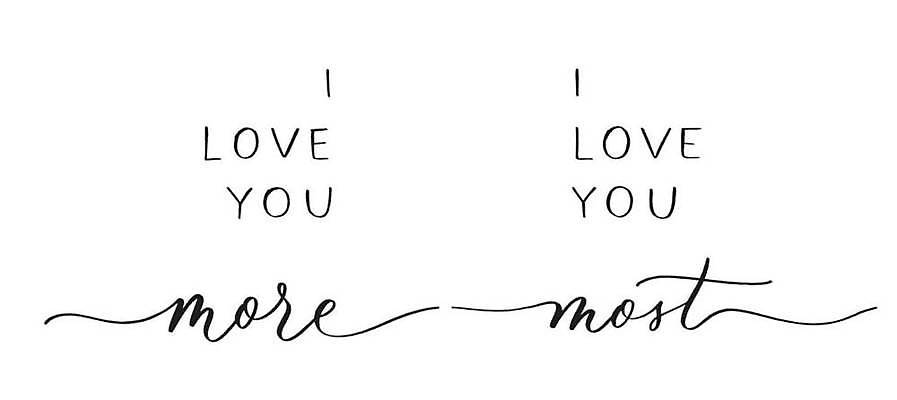 I
LOVE
YOU
more
I
LOVE
YOU
most